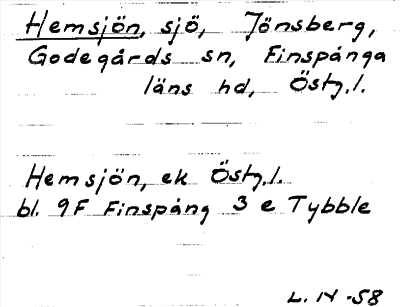 Hemsjön, sjö, Jönsberg,
Godegårds sn, Finspånga
läns hd, Östg.l.
Hemsjön, ek Östg.l.
bl. 9F Finspång 3 e Tybble
L. N -58